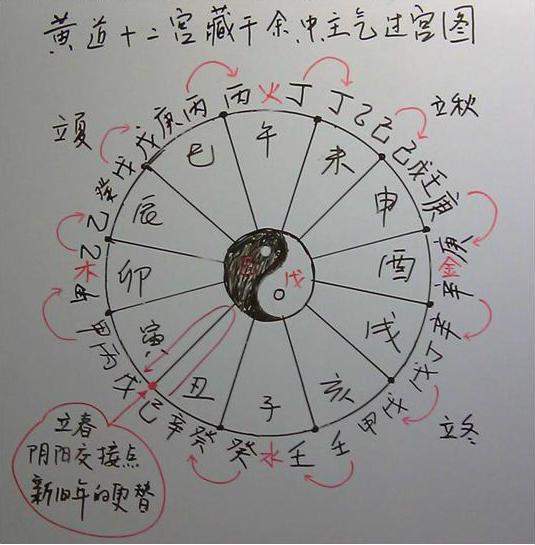 黄道十二宫藏干余中主气过宫图
立夏
戊庚丙
丙火丁
丁乙己
立秋
己戊壬庚
庚金辛
辛丁戊
立冬
戊甲壬
壬水癸
癸辛己
戊丙甲
甲木乙
乙癸戊
巳
午
未
辰
申
卯
酉
寅
戌
丑
子
亥
己
戊
立春
阴阳交接点
新旧年的更替